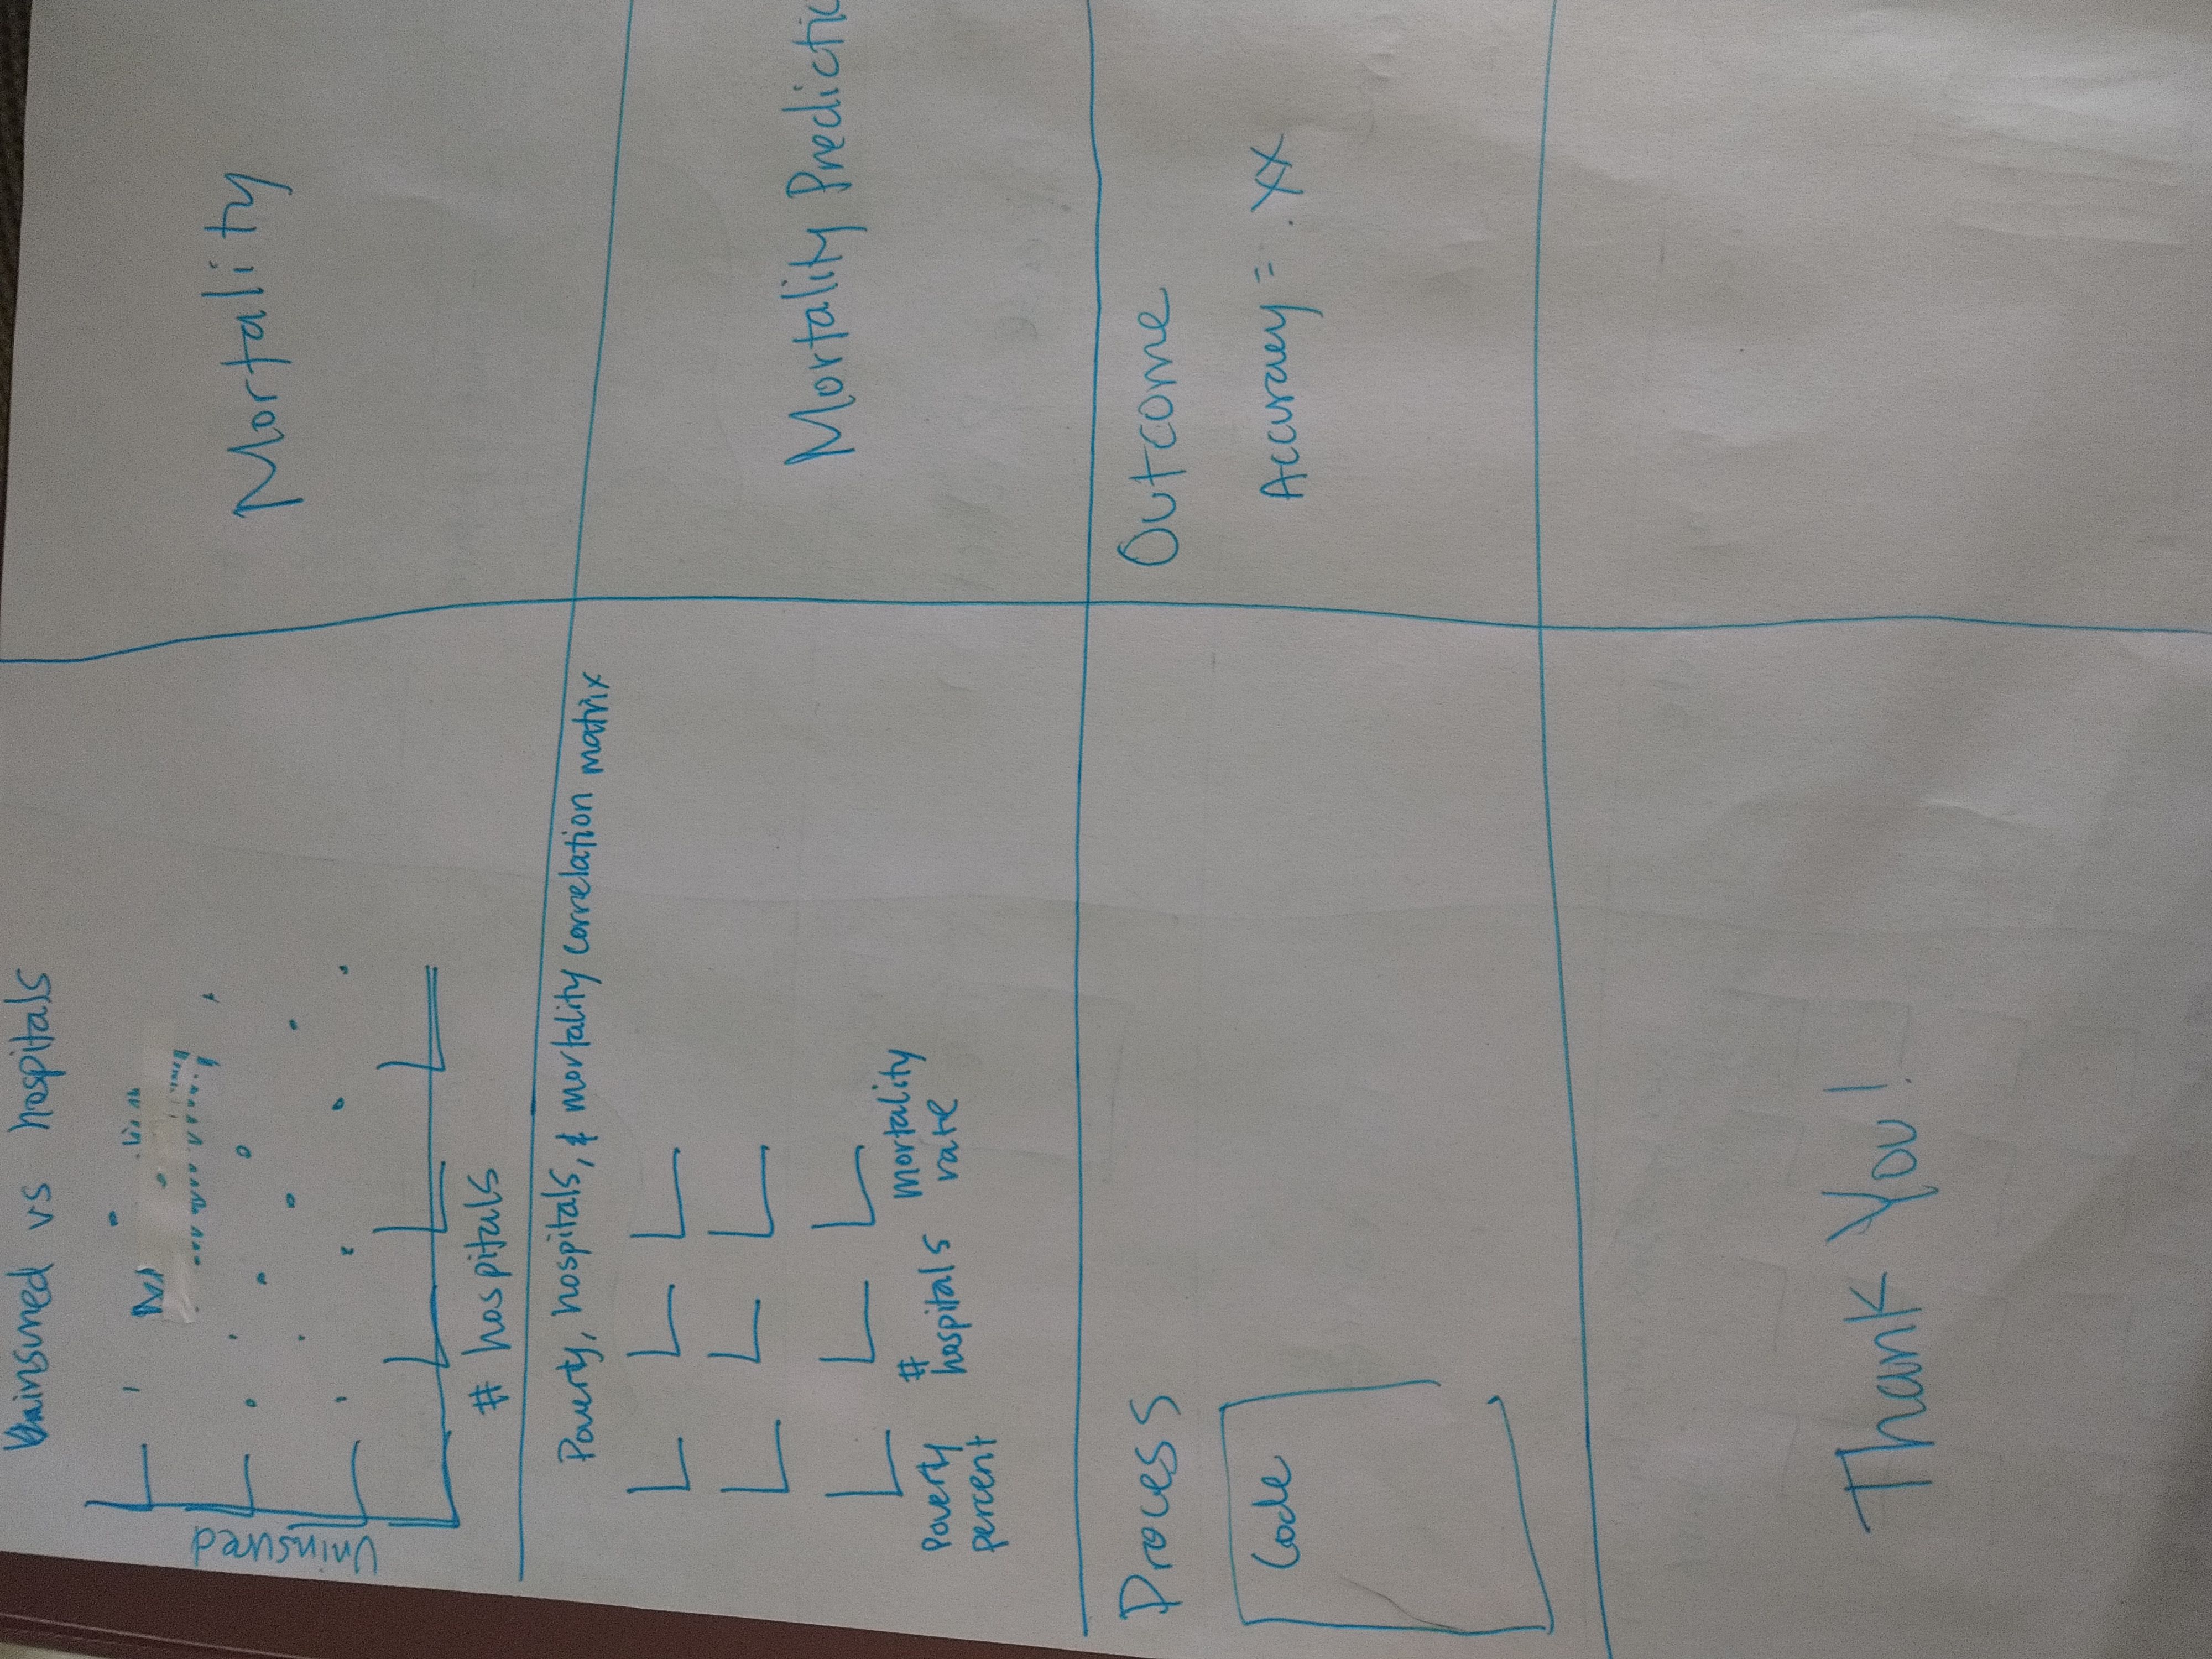 Uninsured vs hospitals
Uninsured
# hospitals
Mortality
Poverty, hospitals, & mortality correlation matrix
Poverty
percent
#
hospitals
mortality
rate
Mortality Predictio
Process
Code
Outcome
Accuracy = .XX
Thank You!